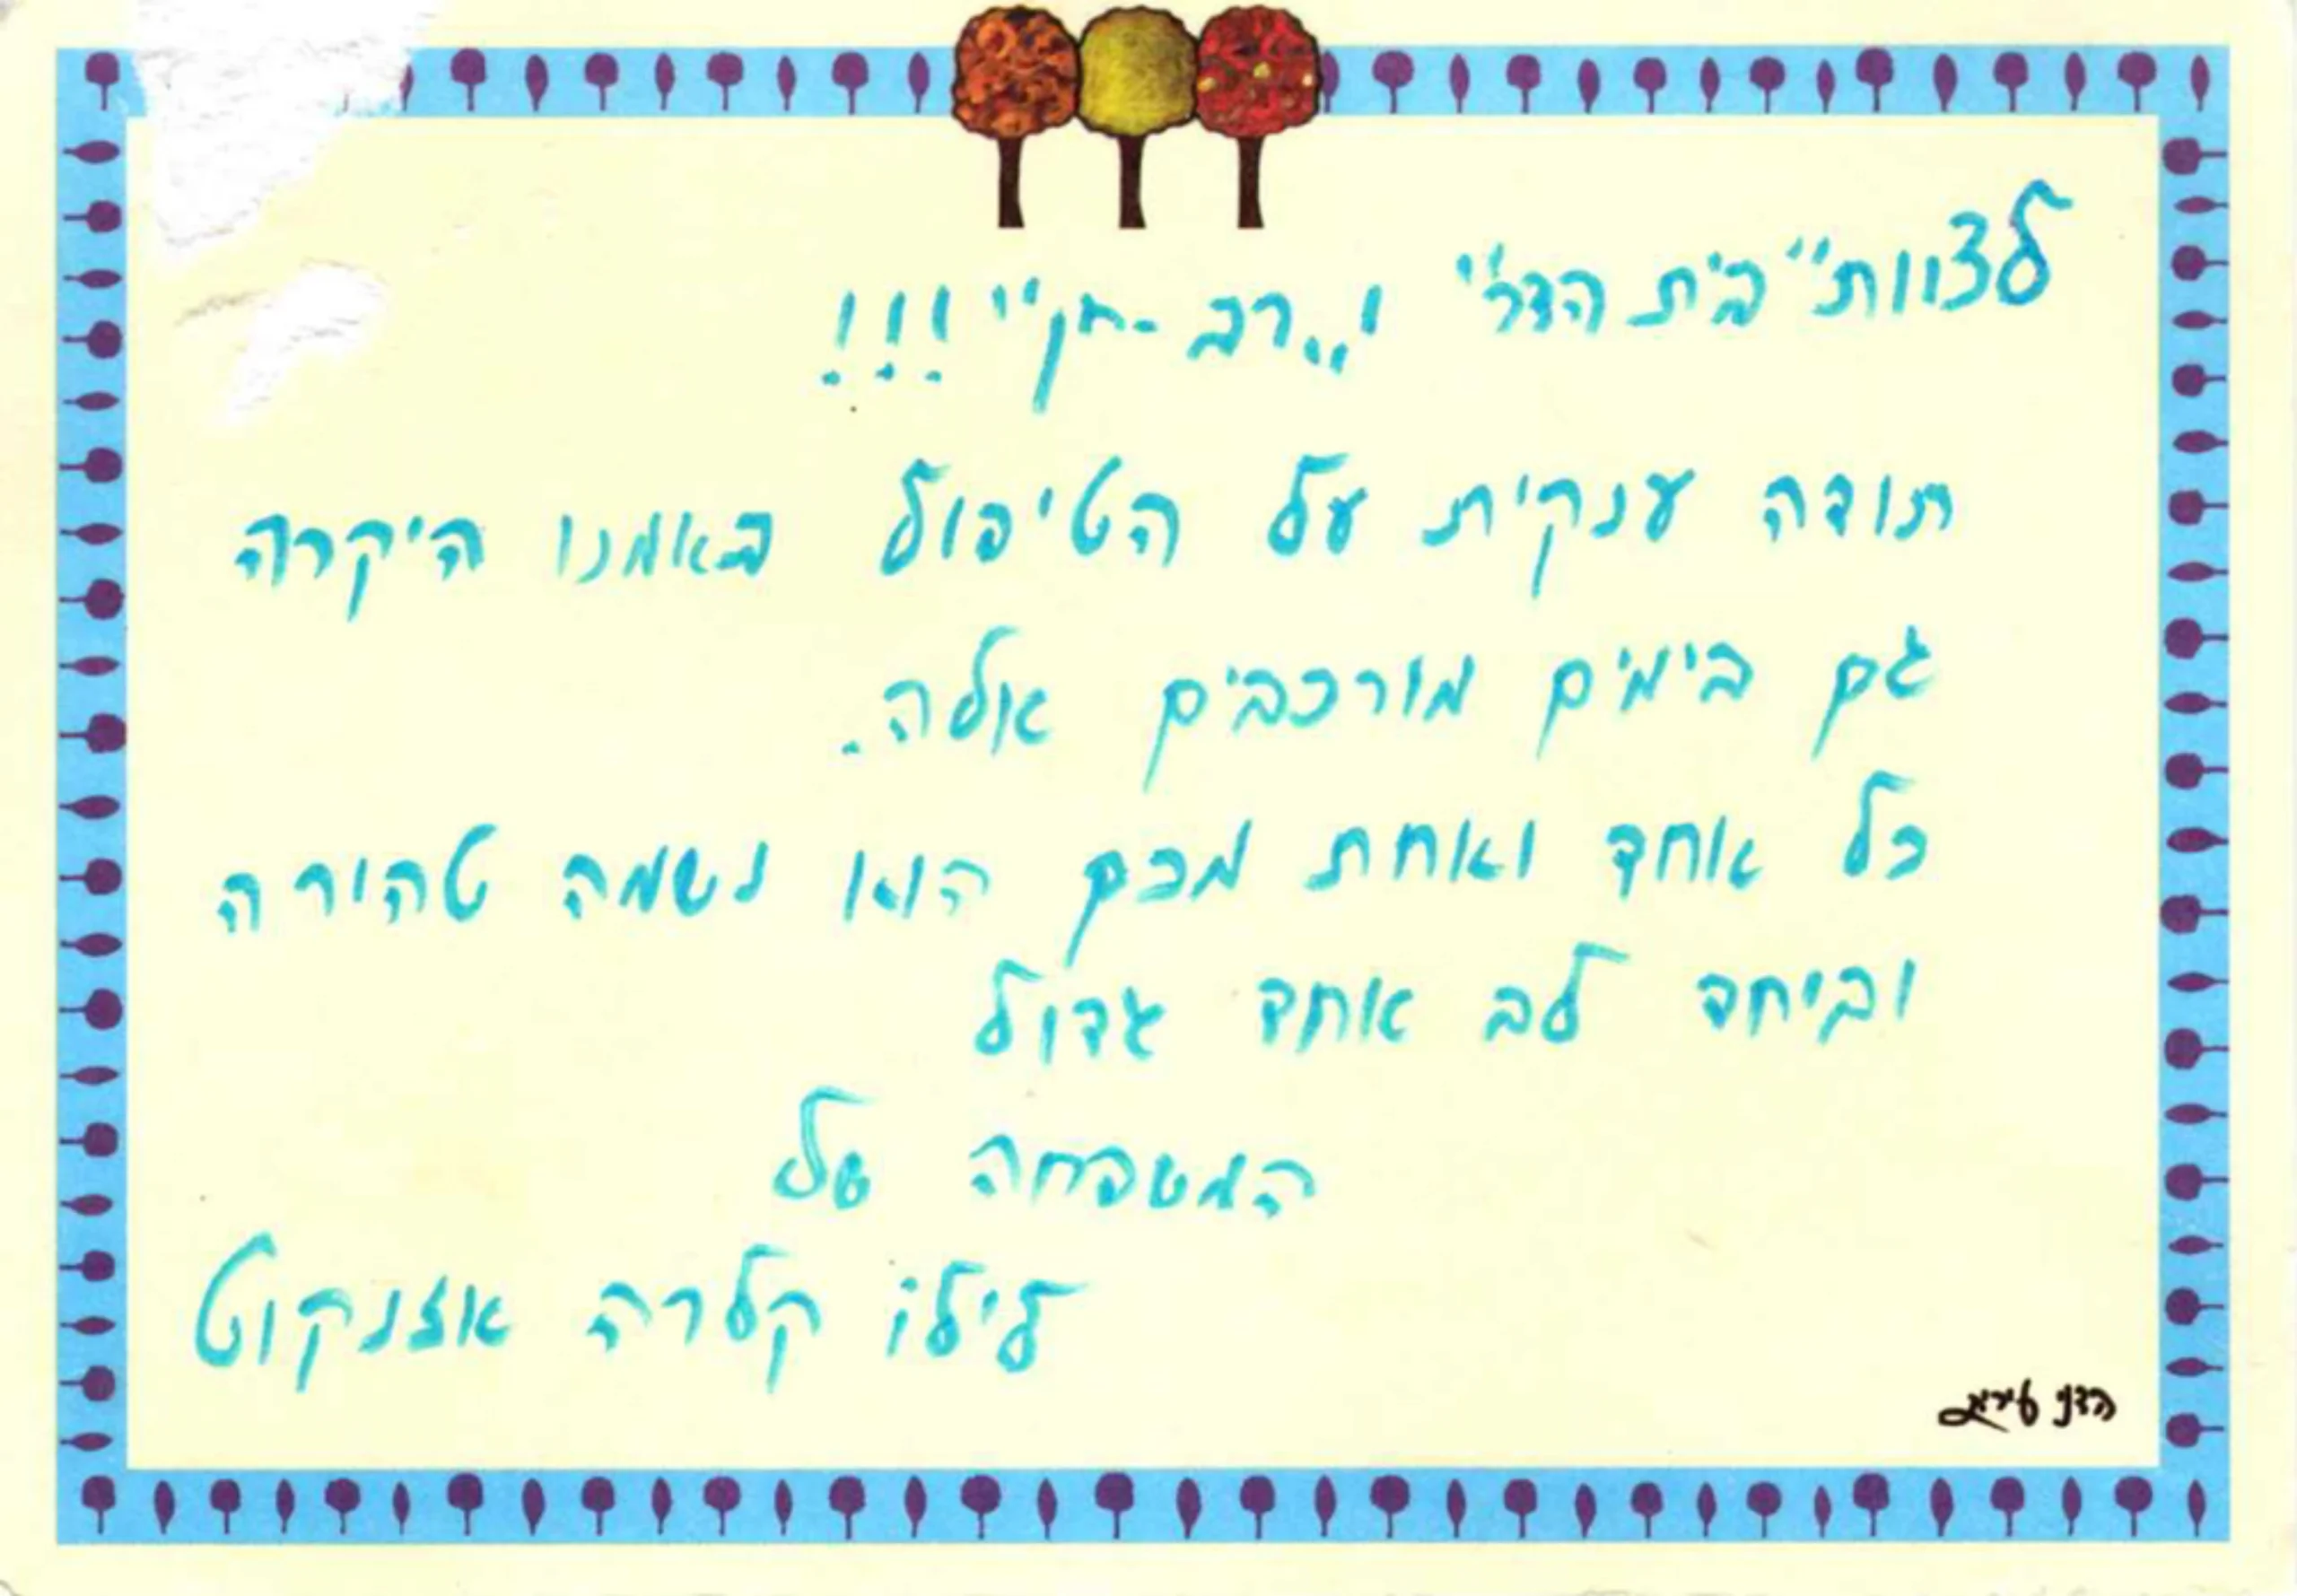 לצוות "בית הדר" ו"רב-חן"!!!
תודה ענקית על הטיפול באמנו היקרה
גם בימים מורכבים אלה.
כל אוחד ואחת מכם הוא נשמה טהורה
וביחד לב אחד גדול
המשפחה של
לילו קלרה אזנקוט